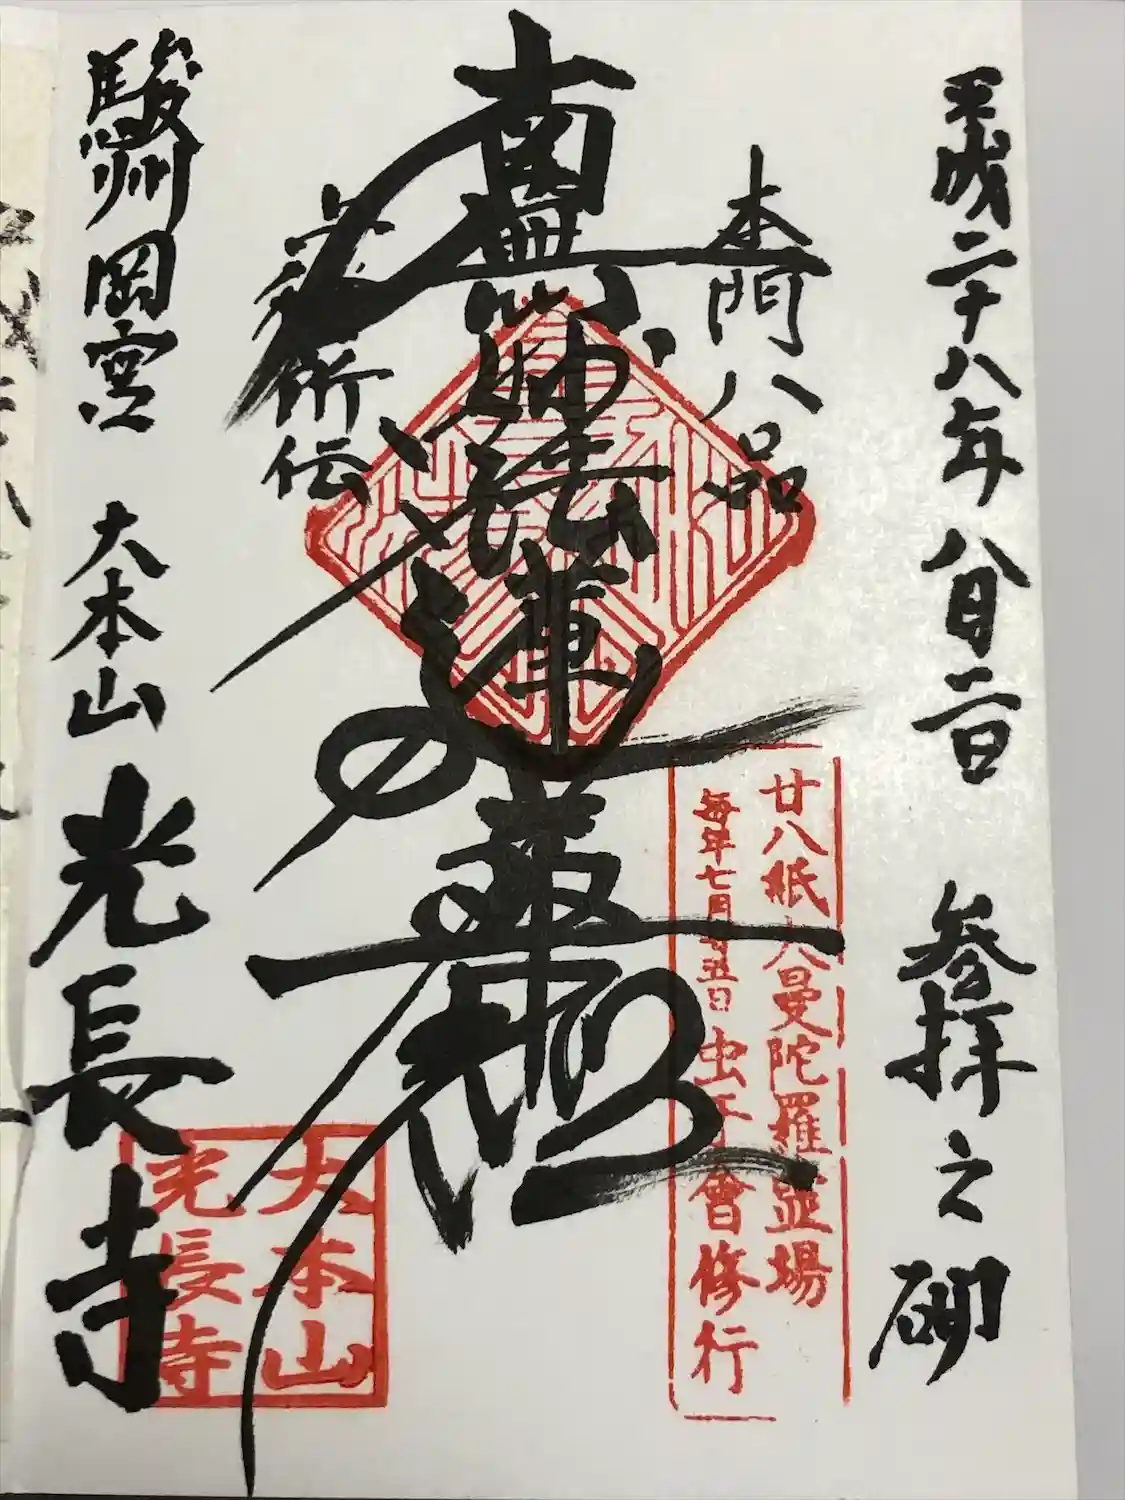 平成二十八年 八月二日 参拝之砌
本門八品
南無妙法蓮華経
所伝
駿州岡宮 大本山 光長寺
廿八紙大曼陀羅霊場
毎年七月廿五日 虫干會修行
大本山
光長寺